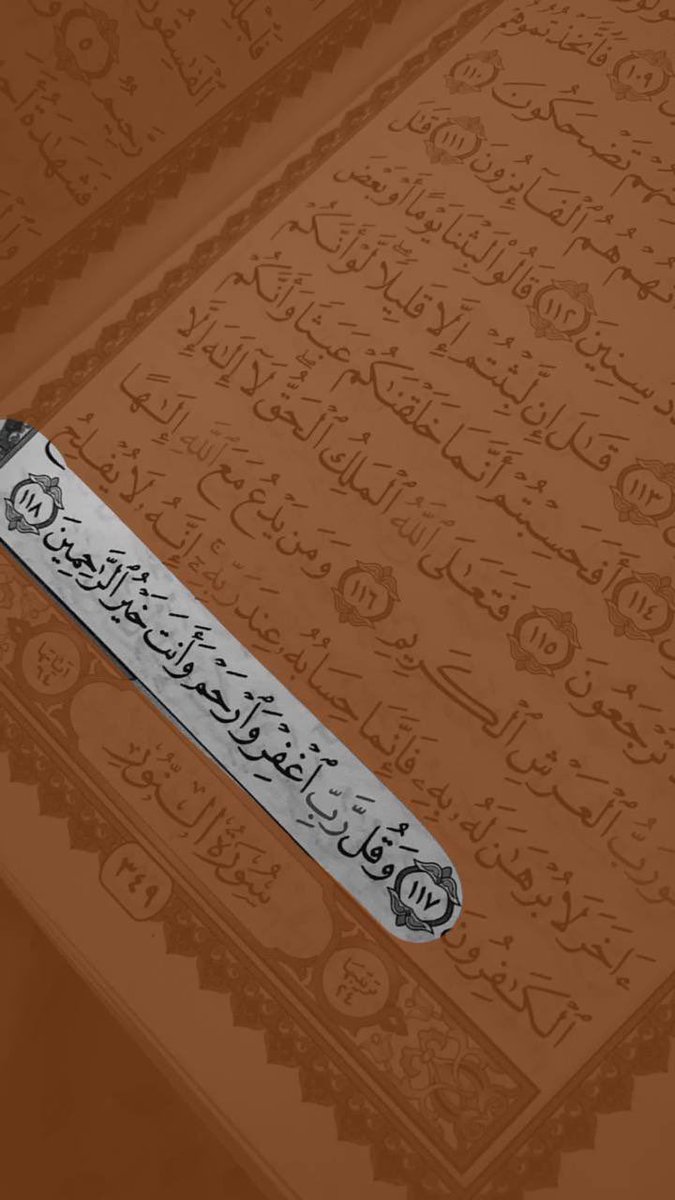 ١٠٩ فَٱتَّخَذْتُمُوهُمْ
تَضْحَكُونَ ١١٠
هُمُ ٱلْفَآئِزُونَ ١١١ قَٰلَ
سِنِينَ ١١٢ قَالُوا۟ لَبِثْنَا يَوْمًا أَوْ بَعْضَ
١١٣ قَٰلَ إِن لَّبِثْتُمْ إِلَّا قَلِيلًا ۖ لَّوْ أَنَّكُمْ
١١٤ أَفَحَسِبْتُمْ أَنَّمَا خَلَقْنَٰكُمْ عَبَثًا وَأَنَّكُمْ
تُرْجَعُونَ ١١٥ فَتَعَٰلَى ٱللَّهُ ٱلْمَلِكُ ٱلْحَقُّ ۖ لَآ إِلَٰهَ إِلَّا
رَبُّ ٱلْعَرْشِ ٱلْكَرِيمِ ١١٦ وَمَن يَدْعُ مَعَ ٱللَّهِ إِلَٰهًا
ءَاخَرَ لَا بُرْهَٰنَ لَهُۥ بِهِۦ فَإِنَّمَا حِسَابُهُۥ عِندَ رَبِّهِۦٓ ۚ إِنَّهُۥ لَا يُفْلِحُ
ٱلْكَٰفِرُونَ ١١٧ وَقُل رَّبِّ ٱغْفِرْ وَٱرْحَمْ وَأَنتَ خَيْرُ ٱلرَّٰحِمِينَ ١١٨
ترتيبها ٢٤ سُورَةُ النُّورِ آياتها ٦٤
٣٤٩
ٱلْفَٰسِقُونَ
رَّحِيمٌ ٥
فَشَهَٰدَةُ